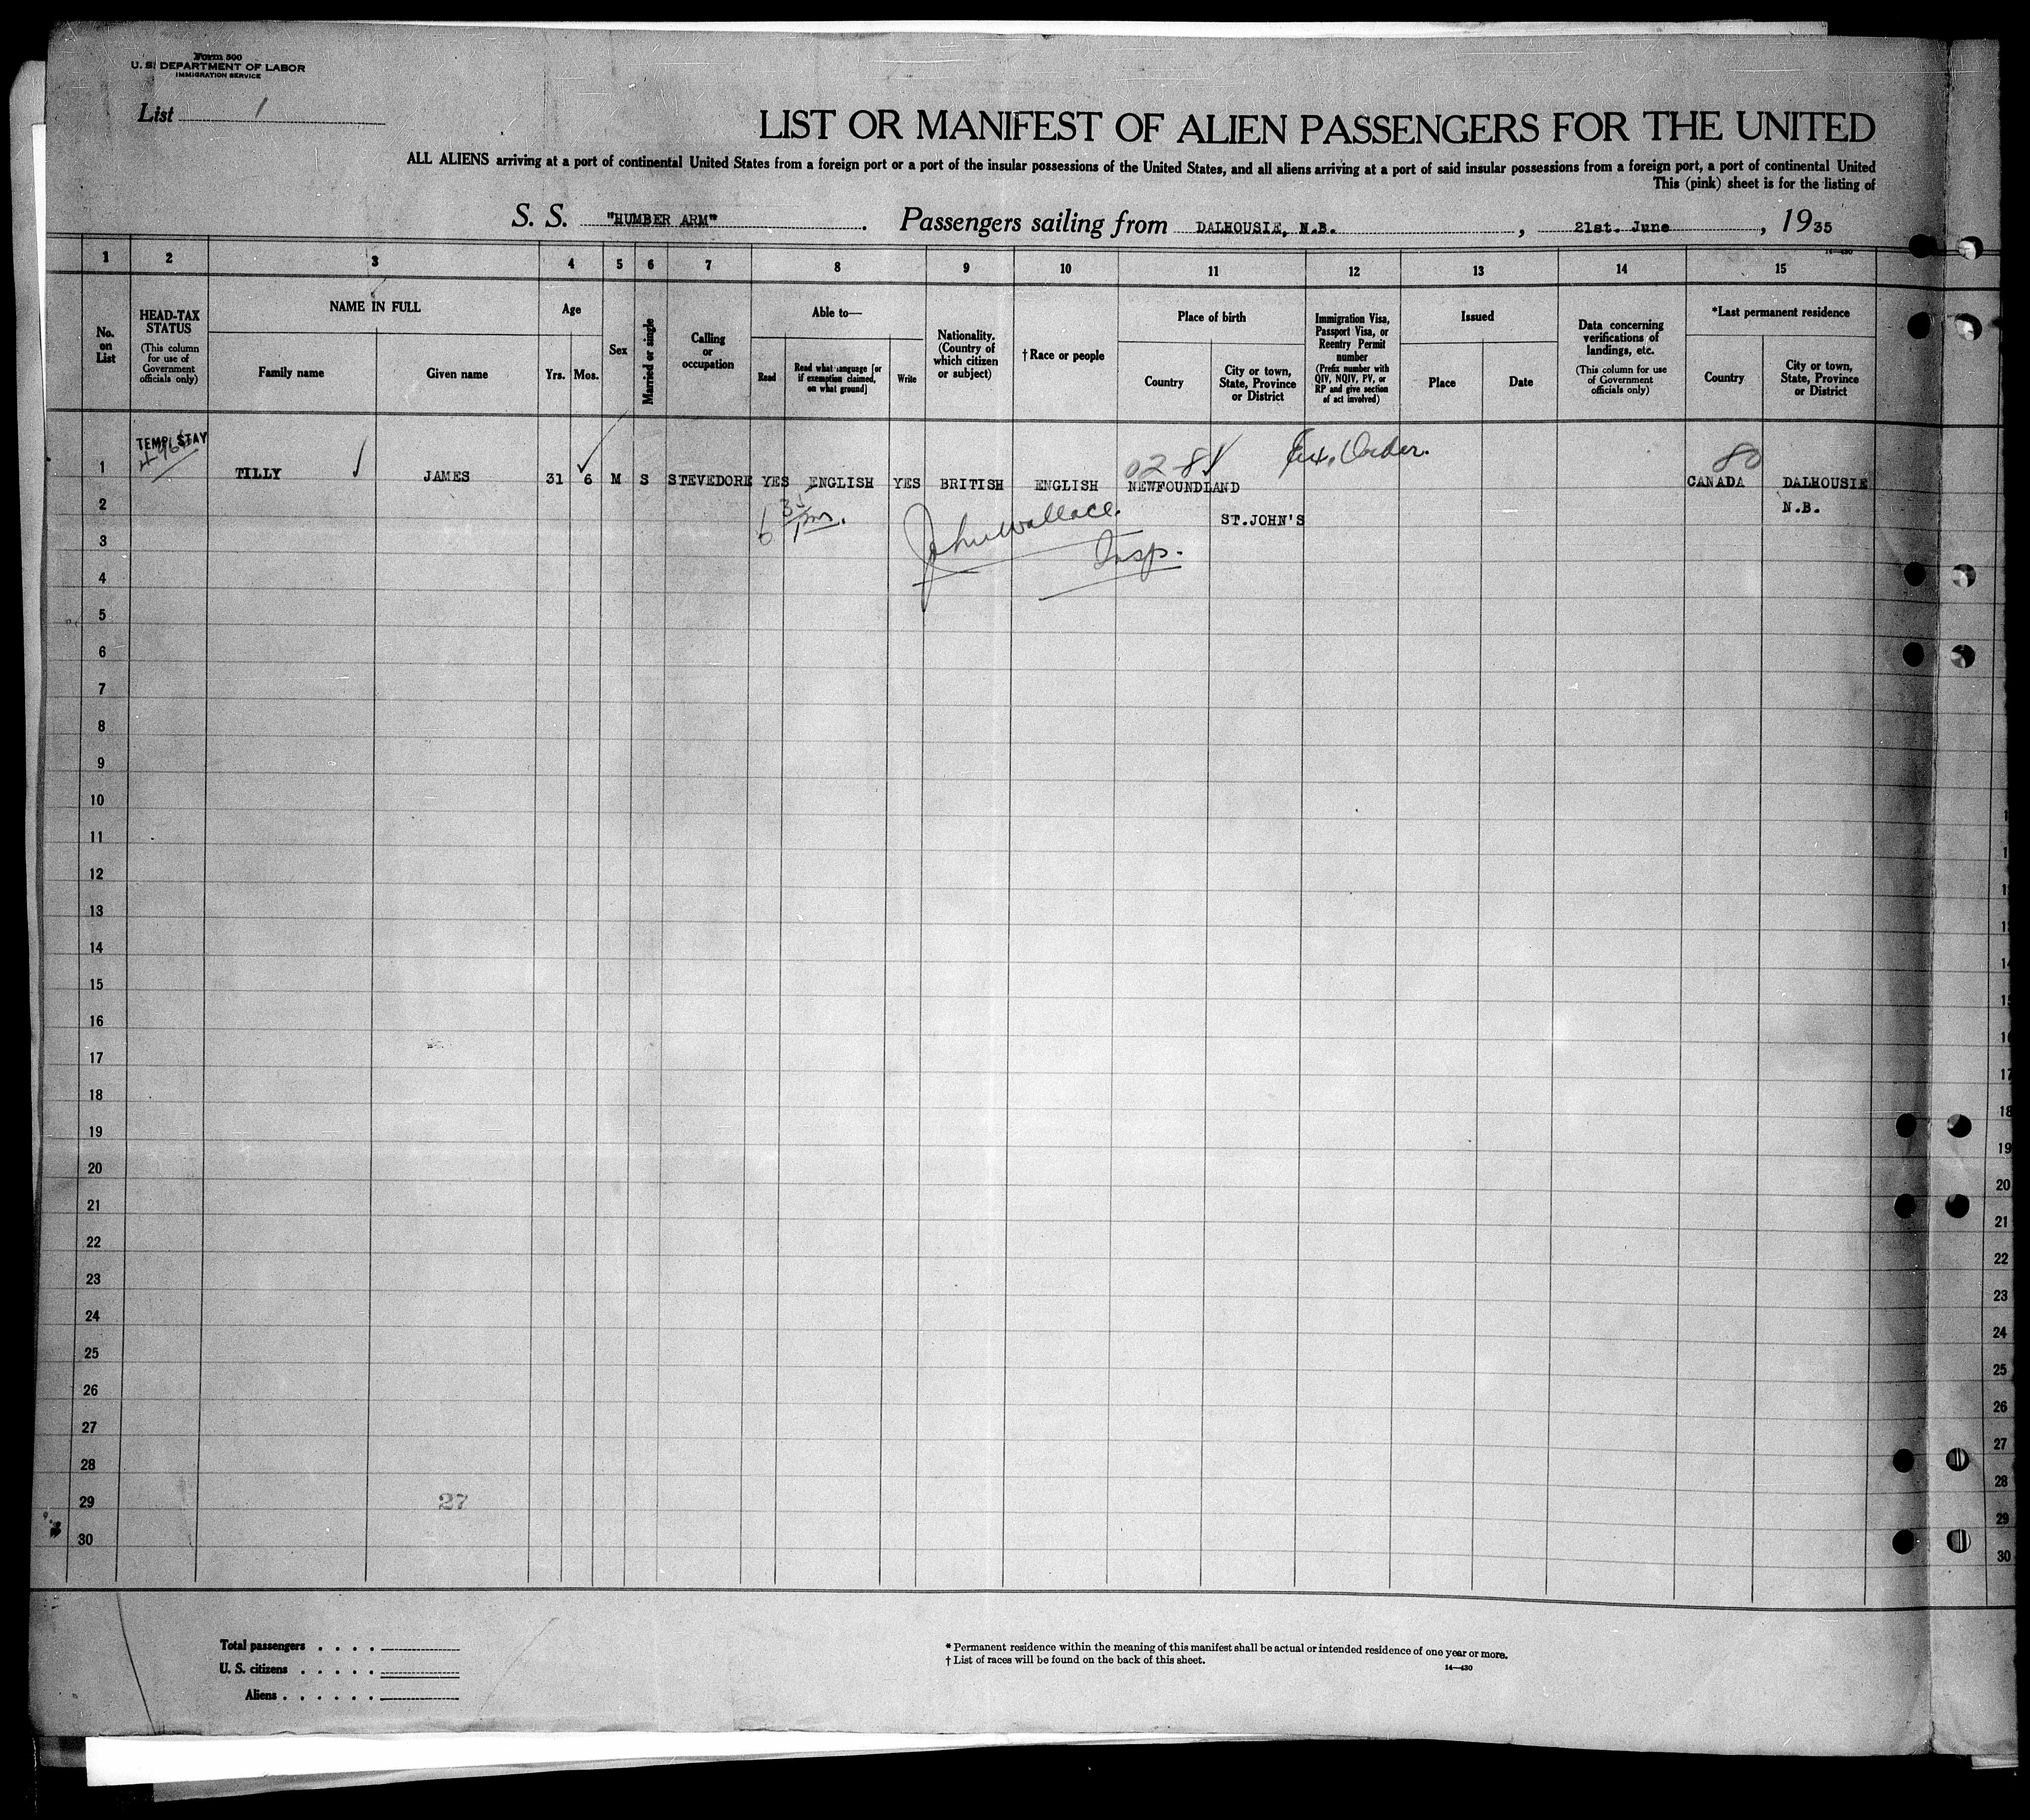 Form 500
U. S. DEPARTMENT OF LABOR
IMMIGRATION SERVICE
List 1
LIST OR MANIFEST OF ALIEN PASSENGERS FOR THE UNITED
ALL ALIENS arriving at a port of continental United States from a foreign port or a port of the insular possessions of the United States, and all aliens arriving at a port of said insular possessions from a foreign port, a port of continental United
This (pink) sheet is for the listing of
S. S. "HUMBER ARM". Passengers sailing from DALHOUSIE, N.B., 21st. June, 1935
14—430
1 2 3 4 5 6 7 8 9 10 11 12 13 14 15
No. on List
HEAD-TAX STATUS
(This column for use of Government officials only)
NAME IN FULL
Family name
Given name
Age
Yrs. Mos.
Sex
Married or single
Calling or occupation
Able to—
Read
Read what language [or if exemption claimed, on what ground]
Write
Nationality. (Country of which citizen or subject)
†Race or people
Place of birth
Country
City or town, State, Province or District
Immigration Visa, Passport Visa, or Reentry Permit number
(Prefix number with QIV, NQIV, PV, or RP and give section of act involved)
Issued
Place
Date
Data concerning verifications of landings, etc.
(This column for use of Government officials only)
*Last permanent residence
Country
City or town, State, Province or District
TEMP. STAY
02-81
Ex. Order.
80
1 TILLY JAMES 31 6 M S STEVEDORE YES ENGLISH YES BRITISH ENGLISH NEWFOUNDLAND CANADA DALHOUSIE
2 ST.JOHN'S N.B.
John Wallace.
Insp.
3
4
5
6
7
8
9
10
11
12
13
14
15
16
17
18
19
20
21
22
23
24
25
26
27
28
29
27
30
14
17
18
19
20
21
22
23
24
25
26
27
28
29
30
Total passengers . . . .
U. S. citizens . . . . .
Aliens . . . . . .
* Permanent residence within the meaning of this manifest shall be actual or intended residence of one year or more.
† List of races will be found on the back of this sheet.
14—430